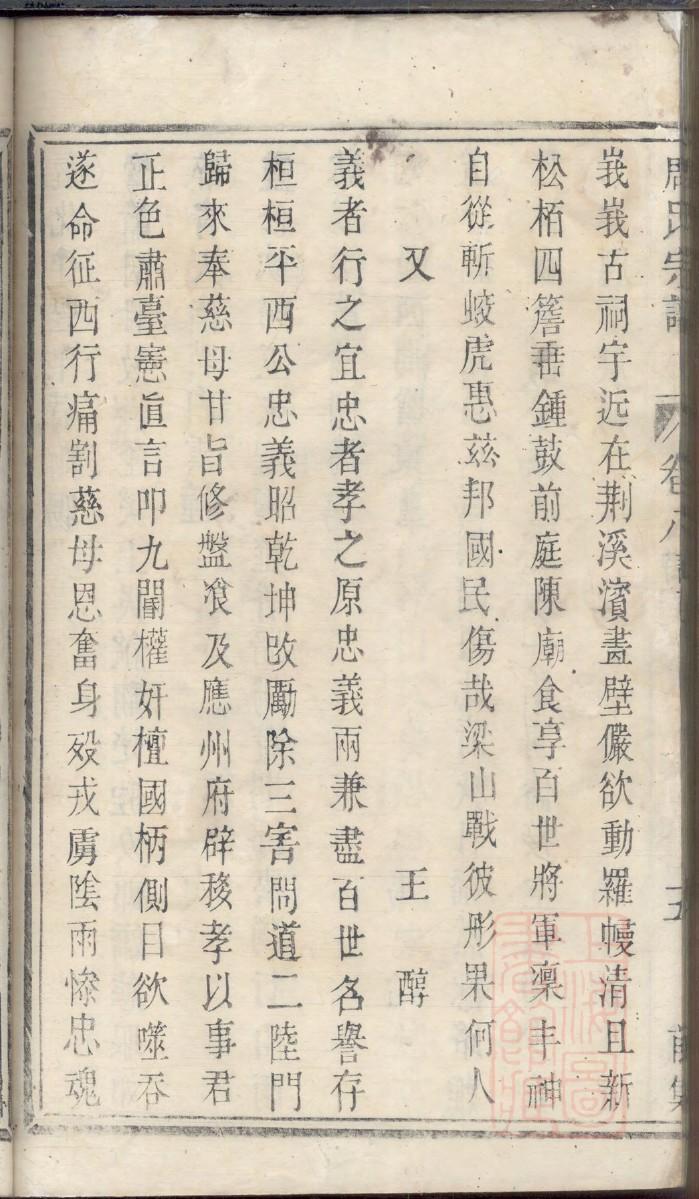 周氏宗譜 卷八 五 前集
峩峩古祠宇远在荆溪濱畵壁儼欲動羅幔清且新
松栢四簷垂鍾鼓前庭陳廟食享百世將軍凜丰神
自從斬蛟虎惠兹邦國民傷哉梁山戰彼彤果何人
又 王醇
義者行之宜忠者孝之原忠義兩兼盡百世名譽存
桓桓平西公忠義昭乾坤改勵除三害問道二陸門
歸來奉慈母甘旨修盤飡及應州府辟移孝以事君
正色肅臺憲眞言叩九閽權奸檀國柄側目欲噬吞
遂命征西行痛割慈母恩奮身殁戎虜陰雨慘忠魂